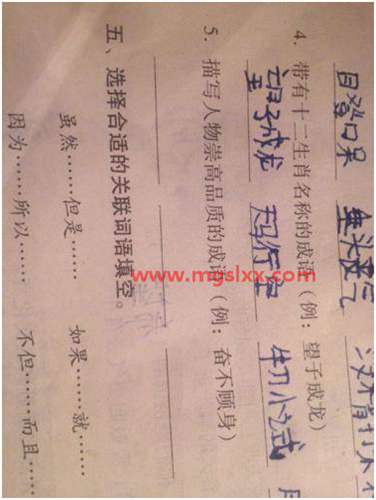 目登口呆 垂头丧气
4. 带有十二生肖名称的成语（例：望子成龙）
望子成龙 天马行空 牛刀小试
5. 描写人物崇高品质的成语（例：奋不顾身）
五、选择合适的关联词语填空。
虽然……但是…… 如果……就……
因为……所以…… 不但……而且……
www.mgslxx.com